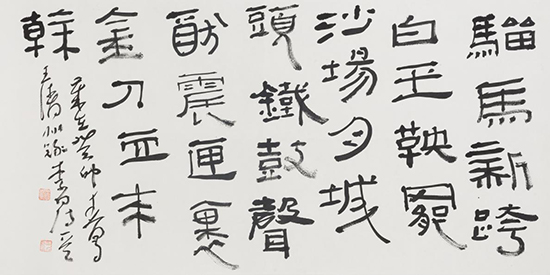 騮馬新跨
白玉鞍罷
沙場月城
頭鐵鼓聲
猶震匣裏
金刀血未
乾
歲在癸卯